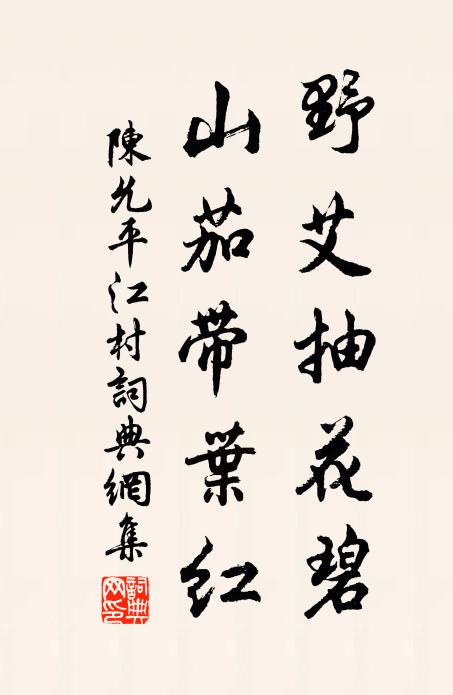 野艾抽花碧
山茄帶葉紅
陳允平江村詞典網集
詞典網印